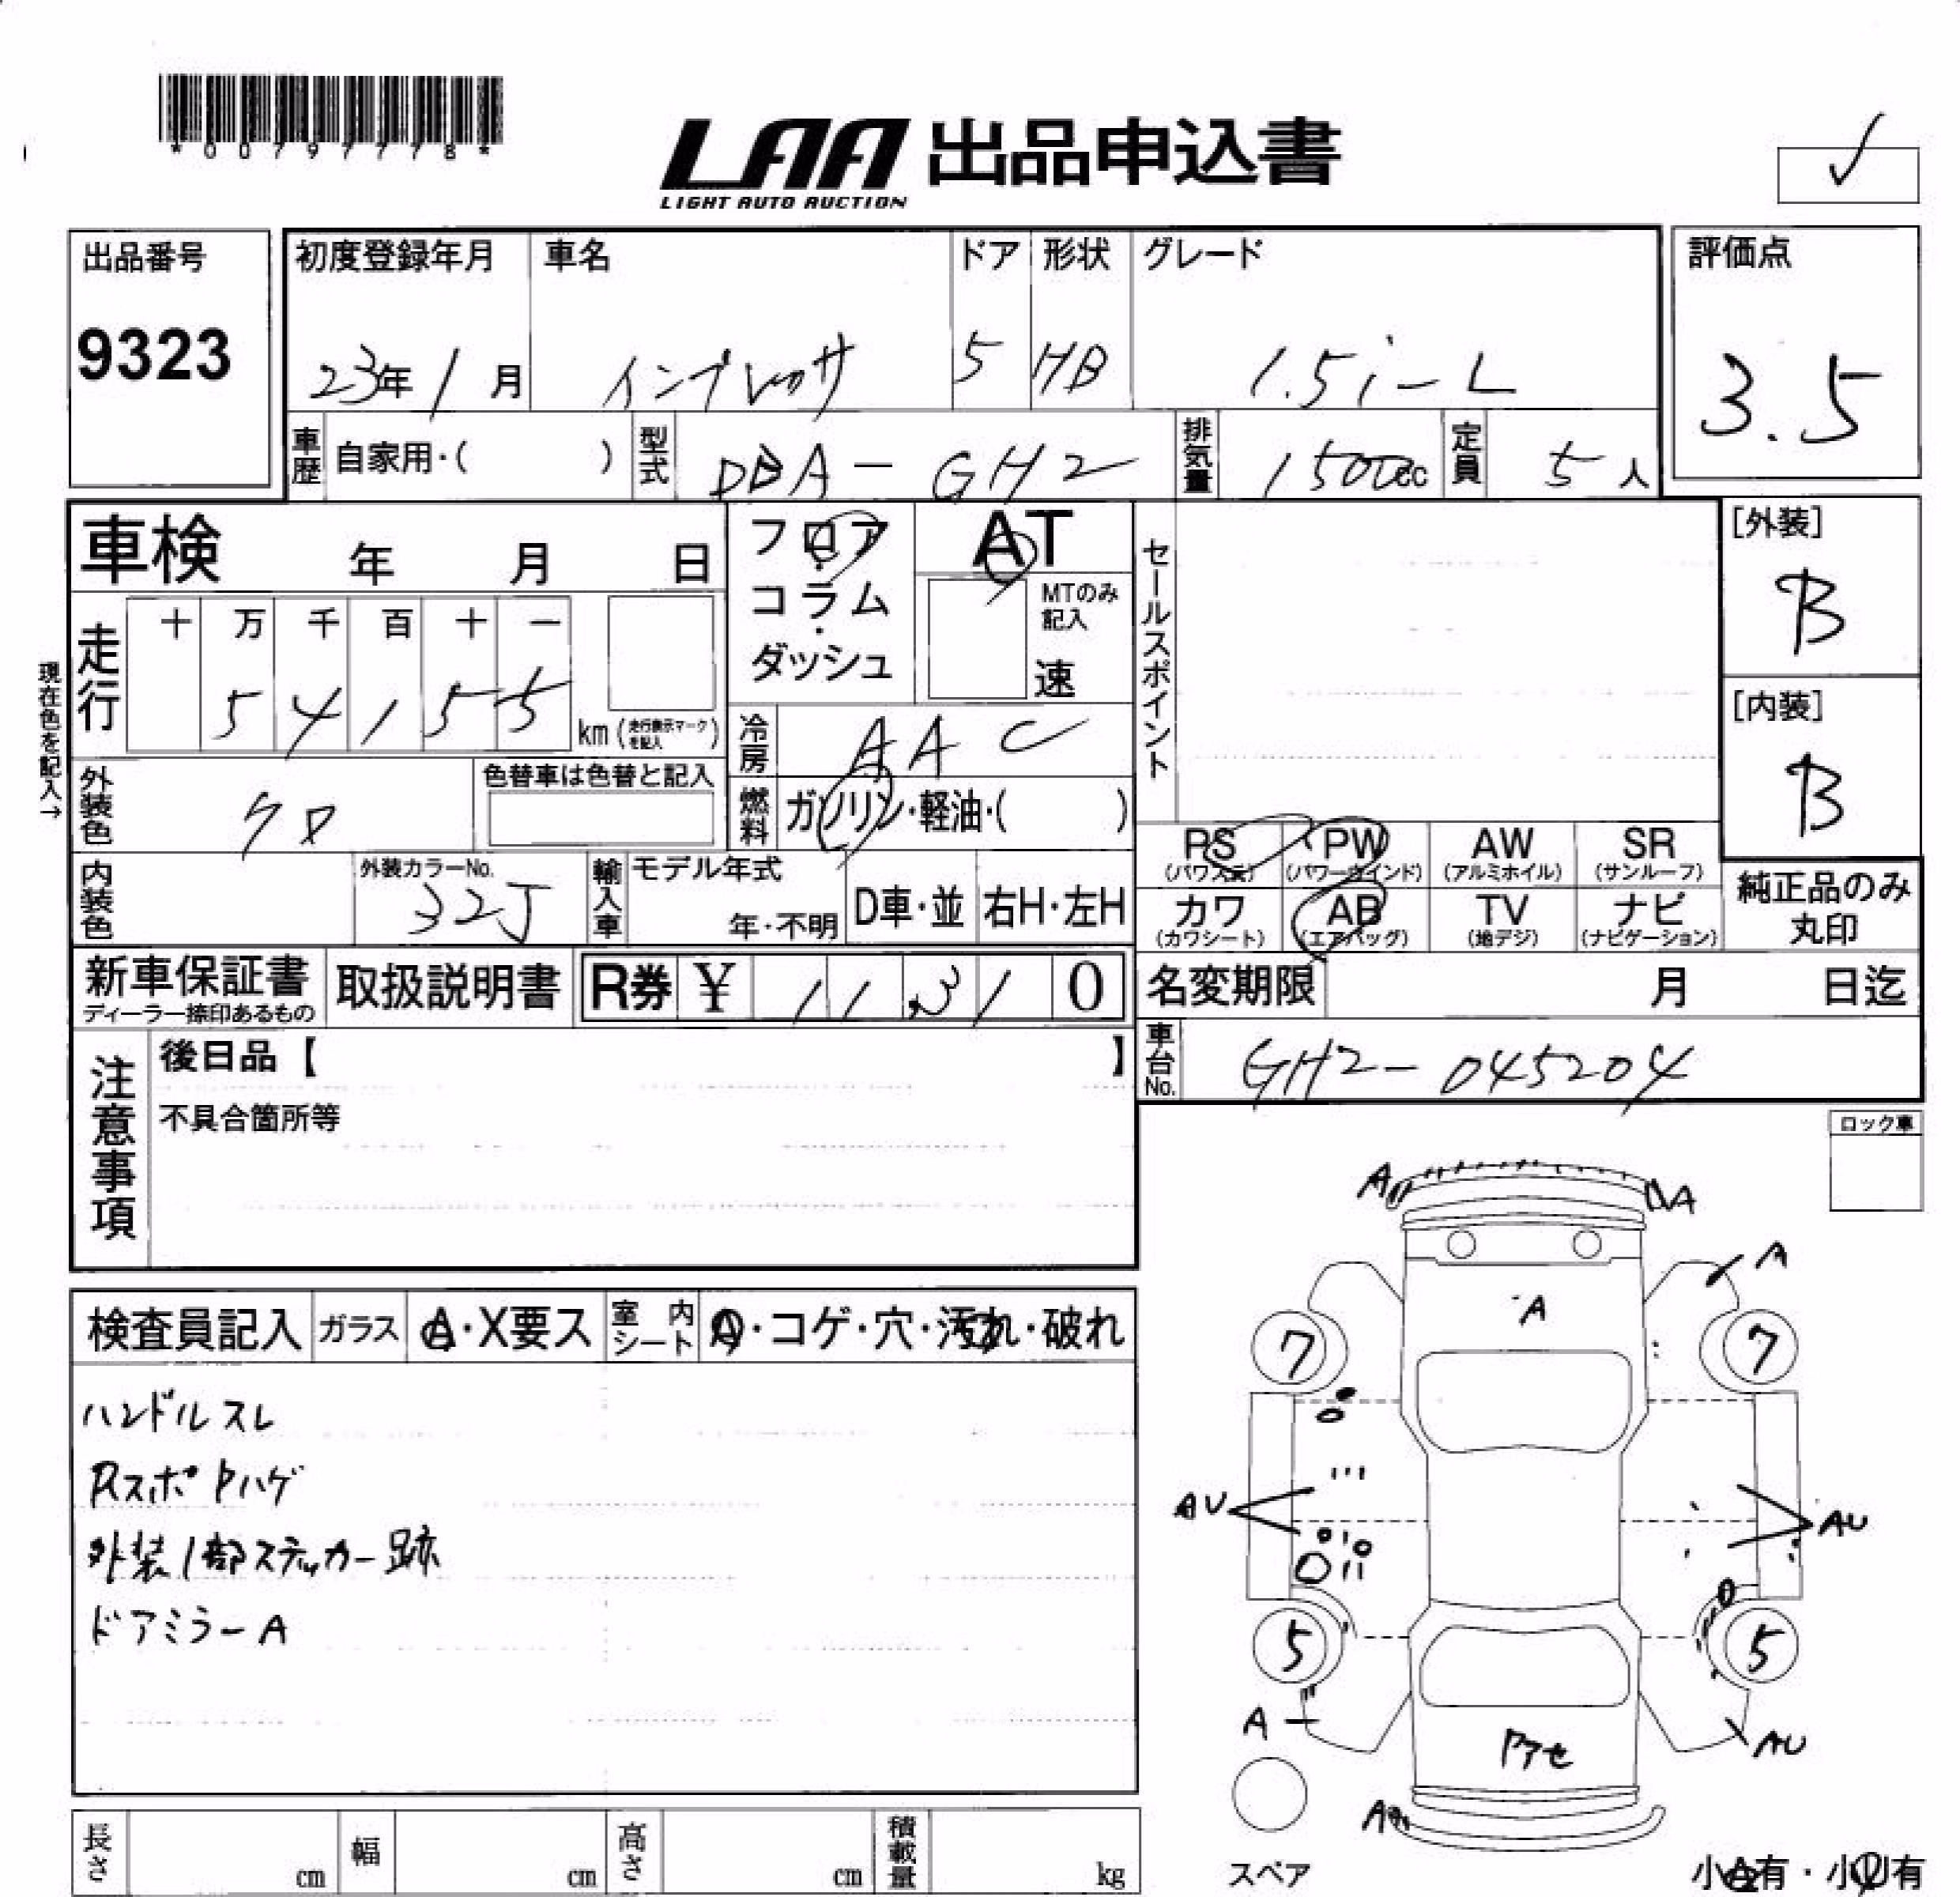 *00797778*
LAA 出品申込書
LIGHT AUTO AUCTION
出品番号
9323
初度登録年月 車名 ドア 形状 グレード
23年 1月 インプレッサ 5 HB 1.5i-L
評価点
3.5
車歴 自家用・( ) 型式 DBA-GH2 排気量 1500cc 定員 5人
車検 年 月 日
フロア・コラム・ダッシュ
AT
MTのみ記入
速
セールスポイント
[外装]
B
[内装]
B
現在色を記入→
走行 十 万 千 百 十 一
5 4 1 5 5 km (走行表示マークを記入)
冷房 AAC
外装色 クロ
色替車は色替と記入
燃料 ガソリン・軽油・( )
内装色
外装カラーNo.
32J
輸入車 モデル年式
年・不明 D車・並 右H・左H
PS PW AW SR
(パワステ) (パワーウインド) (アルミホイル) (サンルーフ)
カワ AB TV ナビ
(カワシート) (エアバッグ) (地デジ) (ナビゲーション)
純正品のみ
丸印
新車保証書
ディーラー捺印あるもの
取扱説明書
R券 ¥ 1 1 3 1 0
名変期限 月 日迄
車台No. GH2-045204
注意事項
後日品【 】
不具合箇所等
ロック車
検査員記入 ガラス A・X要ス 室内シート A・コゲ・穴・汚れ・破れ
ハンドルスレ
Rスポトハゲ
外装1部ステッカー跡
ドアミラーA
A A
A
A
7 7
AU AU
5 5
A AU
トアセ
A
スペア
長さ cm 幅 cm 高さ cm 積載量 kg
小A有・小U有